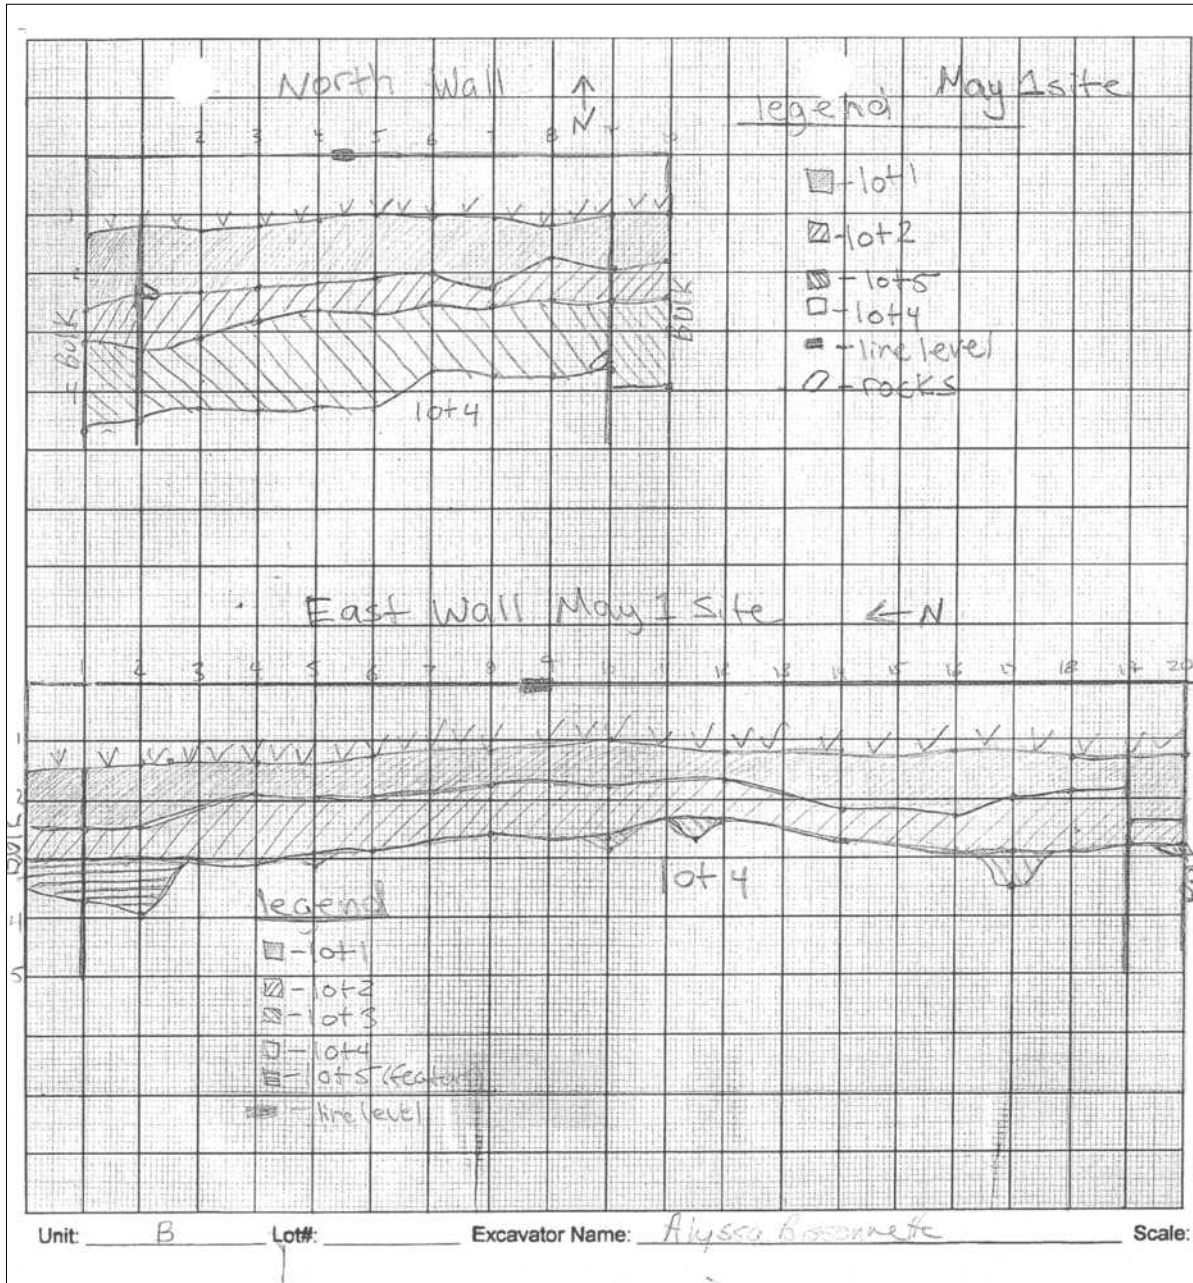 North Wall
N
May 1 site
legend
2 3 4 5 6 7 8 9
- lot 1
- lot 2
- lot 5
- lot 4
- line level
- rocks
= Bulk
Bulk
lot 4
East Wall May 1 Site ← N
1 2 3 4 5 6 7 8 9 10 11 12 13 14 15 16 17 18 19 20
1
2
4
5
Bulk
lot 4
legend
- lot 1
- lot 2
- lot 3
- lot 4
- lot 5 (feature)
- line level
Unit: B Lot#: Excavator Name: Alyssa Bissonnette Scale: